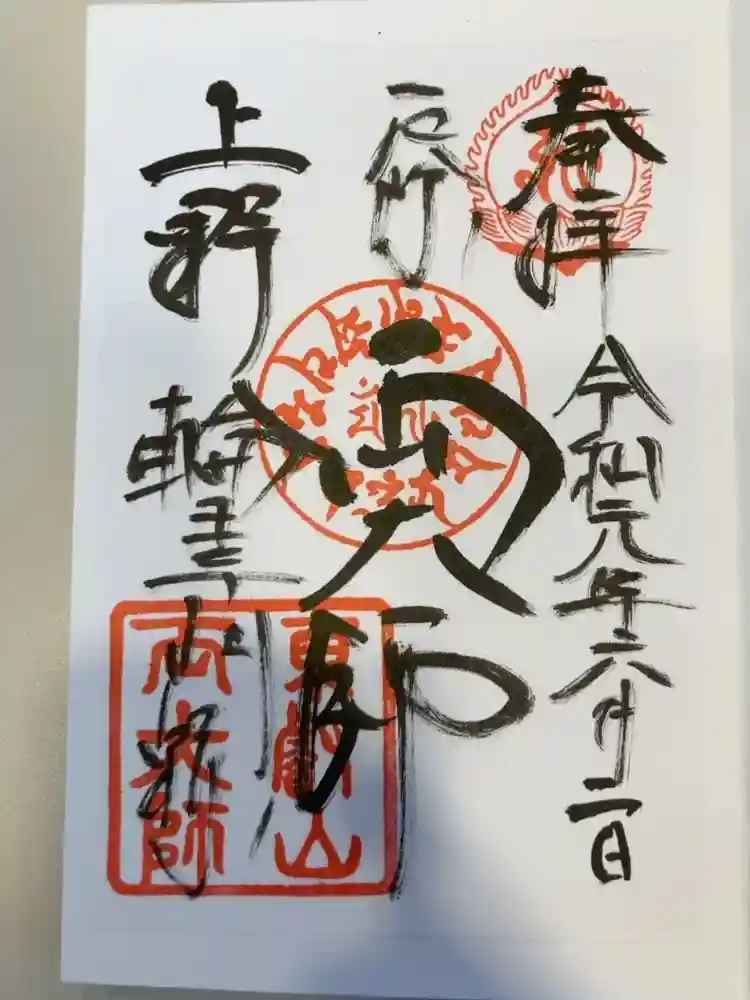 奉拝 令和元年六月二日
両大師
上野 輪王寺
東叡山
両大師